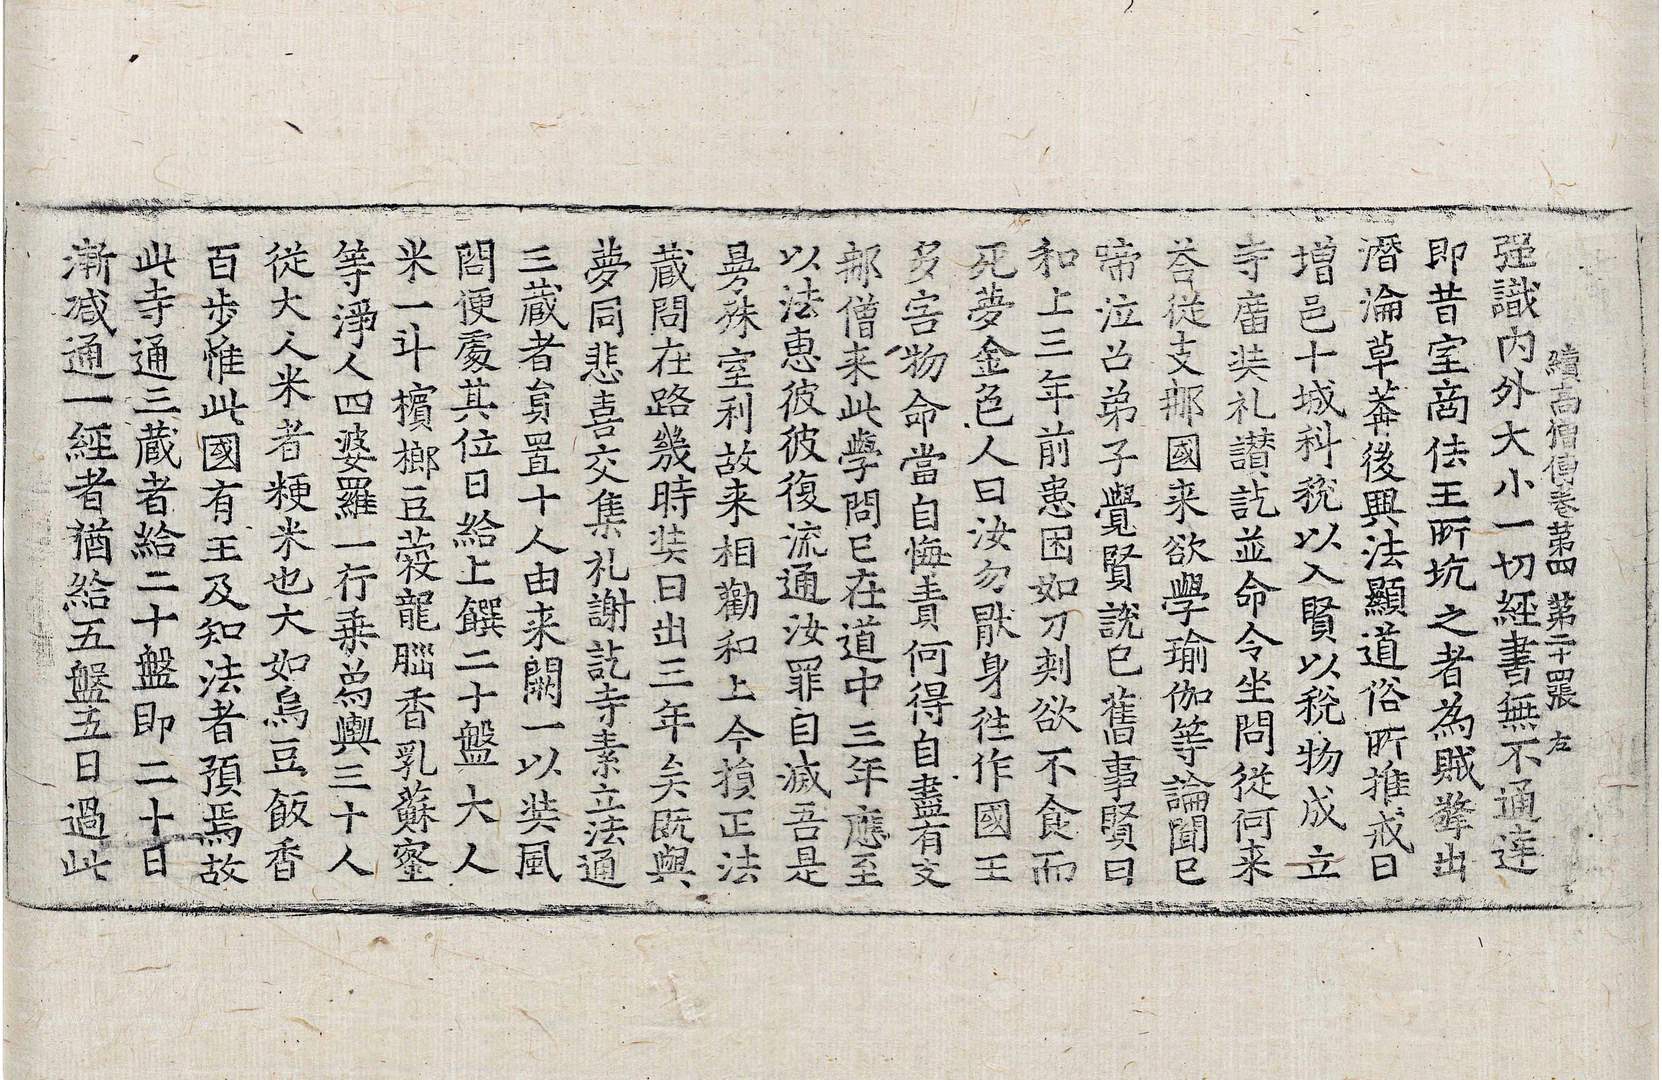 續高僧傳卷第四 第二十四張 左
强識内外大小一切經書無不通達
即昔室商佉王所坑之者為賊擎出
潛淪草莽後興法顯道俗所推戒日
增邑十城科稅以入賢以稅物成立
寺廬奘礼讃訖並命令坐問從何来
荅從支那國来欲學瑜伽等論聞已
啼泣召弟子覺賢說已舊事賢曰
和上三年前患困如刀刺欲不食而
死夢金色人曰汝勿猒身往作國王
多害物命當自悔責何得自盡有支
那僧来此學問已在道中三年應至
以法惠彼彼復流通汝罪自滅吾是
曼殊室利故来相勸和上今損正法
蔵問在路幾時奘曰出三年矣旣與
夢同悲喜交集礼謝訖寺素立法通
三蔵者貟置十人由来闕一以奘風
問便處其位日給上饌二十盤大人
米一斗檳榔豆蔲龍腦香乳蘇蜜
等淨人四婆羅一行乗爲輿三十人
從大人米者粳米也大如烏豆飯香
百步惟此國有王及知法者預焉故
此寺通三蔵者給二十盤即二十日
漸减通一經者猶給五盤五日過此